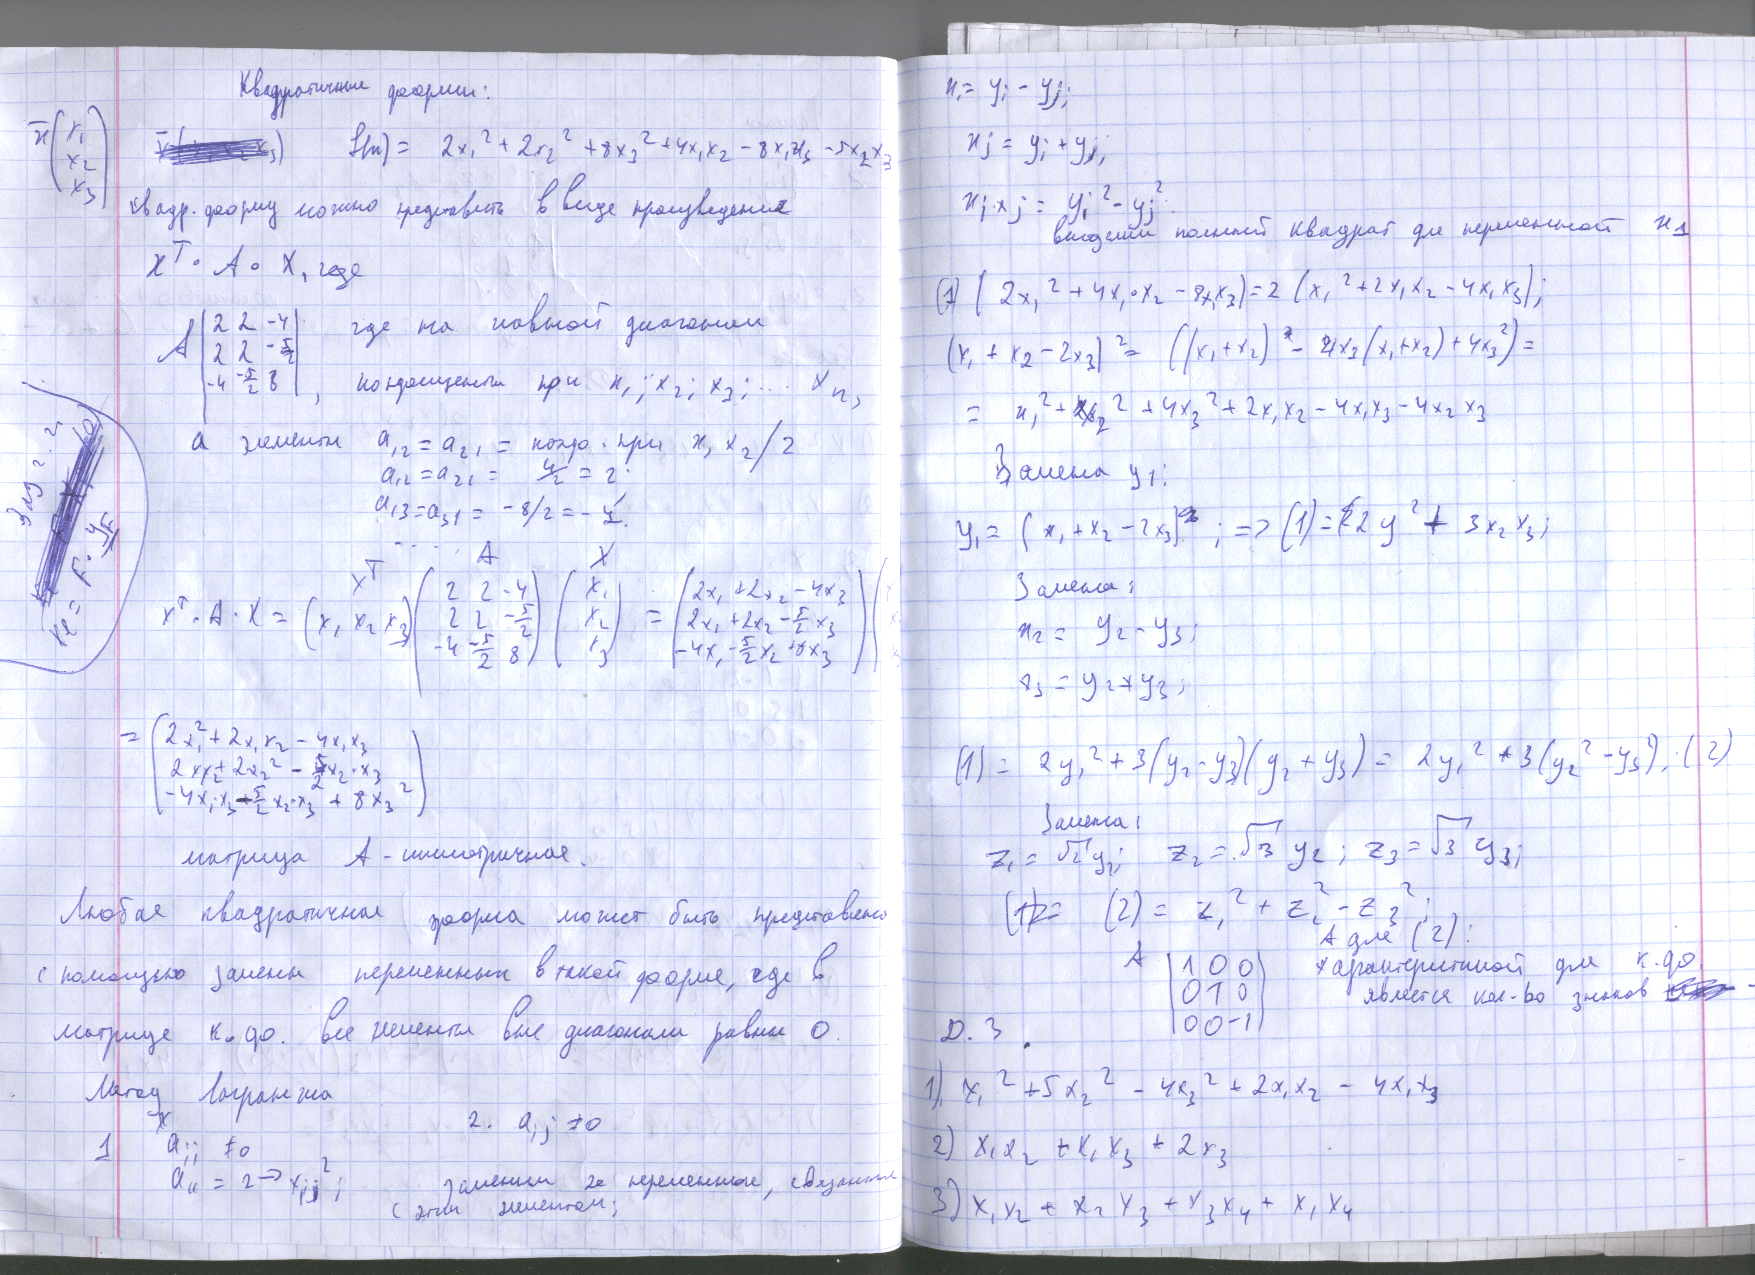 Квадратичные формы:
x̄ (x₁ x₂ x₃) f(x) = 2x₁² + 2x₂² + 8x₃² + 4x₁x₂ - 8x₁x₃ - 5x₂x₃
Квадр. форму можно представить в виде произведения
X^T · A · X, где
A |2 2 -4| где на главной диагонали
|2 2 -5/2|
|-4 -5/2 8| , коэффициенты при x₁; x₂; x₃; ... xₙ,
а элементы a₁₂ = a₂₁ = коэф. при x₁x₂/2
a₁₂ = a₂₁ = 4/2 = 2.
a₁₃ = a₃₁ = -8/2 = -4.
.....
X^T A X
X^T · A · X = (x₁ x₂ x₃) (2 2 -4; 2 2 -5/2; -4 -5/2 8) (x₁ x₂ x₃) = (2x₁ + 2x₂ - 4x₃; 2x₁ + 2x₂ - 5/2 x₃; -4x₁ - 5/2 x₂ + 8x₃)
= (2x₁² + 2x₁x₂ - 4x₁x₃
2x₁x₂ + 2x₂² - 5/2 x₂·x₃
-4x₁·x₃ - 5/2 x₂·x₃ + 8x₃²)
матрица A - симметричная.
Любая квадратичная форма может быть представлена
с помощью замены переменных в такой форме, где в
матрице к. ф. все элементы вне диагонали равны 0.
Метод Лагранжа
1 a_ii ≠ 0
2. a_ij ≠ 0
a₁₁ = 2 →
заменим 2е переменные, связанные
с этим элементом;
x_i = y_i - y_j;
x_j = y_i + y_j;
x_i·x_j = y_i² - y_j²
выделим полный квадрат для переменной x₁
(1) (2x₁² + 4x₁·x₂ - 8x₁x₃) = 2(x₁² + 2x₁x₂ - 4x₁x₃);
(x₁ + x₂ - 2x₃)² = ((x₁+x₂)² - 4x₃(x₁+x₂) + 4x₃²) =
= x₁² + x₂² + 4x₃² + 2x₁x₂ - 4x₁x₃ - 4x₂x₃
Замена y₁:
y₁ = (x₁ + x₂ - 2x₃) ; => (1) = 2y² + 3x₂x₃;
Замена:
x₂ = y₂ - y₃;
x₃ = y₂ + y₃;
(1) = 2y₁² + 3(y₂ - y₃)(y₂ + y₃) = 2y₁² + 3(y₂² - y₃²); (2)
Замена:
z₁ = √2 y₁; z₂ = √3 y₂; z₃ = √3 y₃;
(2) = z₁² + z₂² - z₃²;
A для (2):
A |1 0 0| характеристикой для к. ф.
|0 1 0| является кол-во знаков
|0 0 -1|
Д. З.
1) x₁² + 5x₂² - 4x₃² + 2x₁x₂ - 4x₁x₃
2) x₁x₂ + x₁x₃ + 2x₃
3) x₁x₂ + x₂x₃ + x₃x₄ + x₁x₄